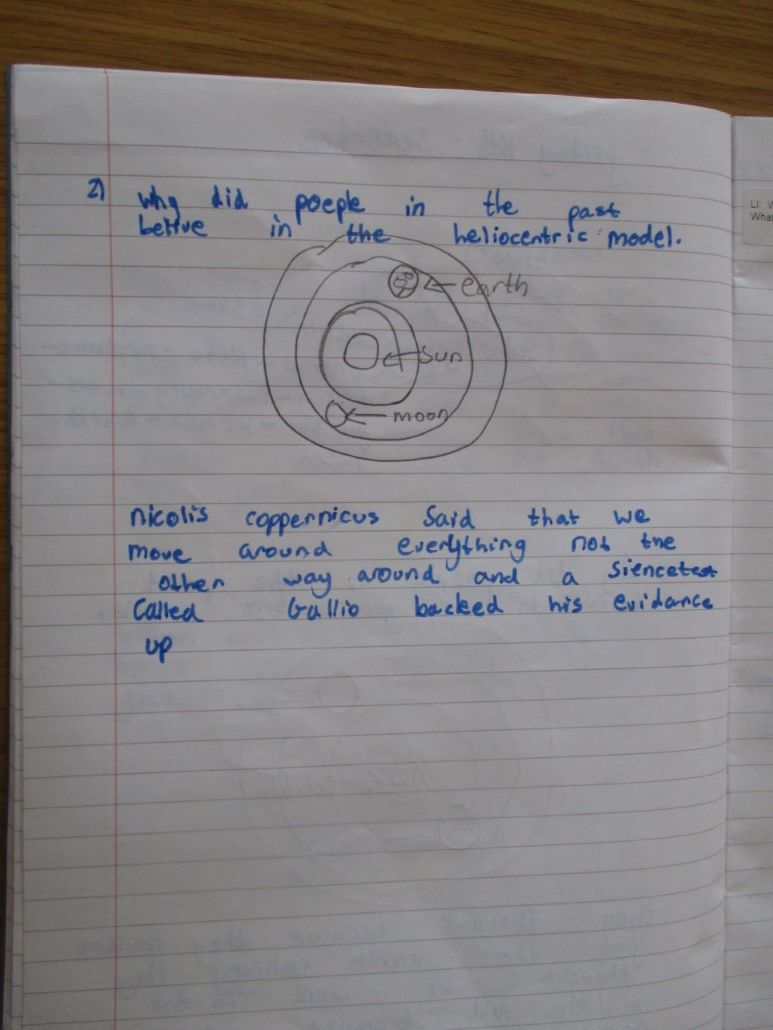 2) why did poeple in the past
beltve in the heliocentric model.
earth
sun
moon
nicolis coppernicus said that we
move around everything not the
other way around and a
called Gallio backed his evidance
up
LI:
What